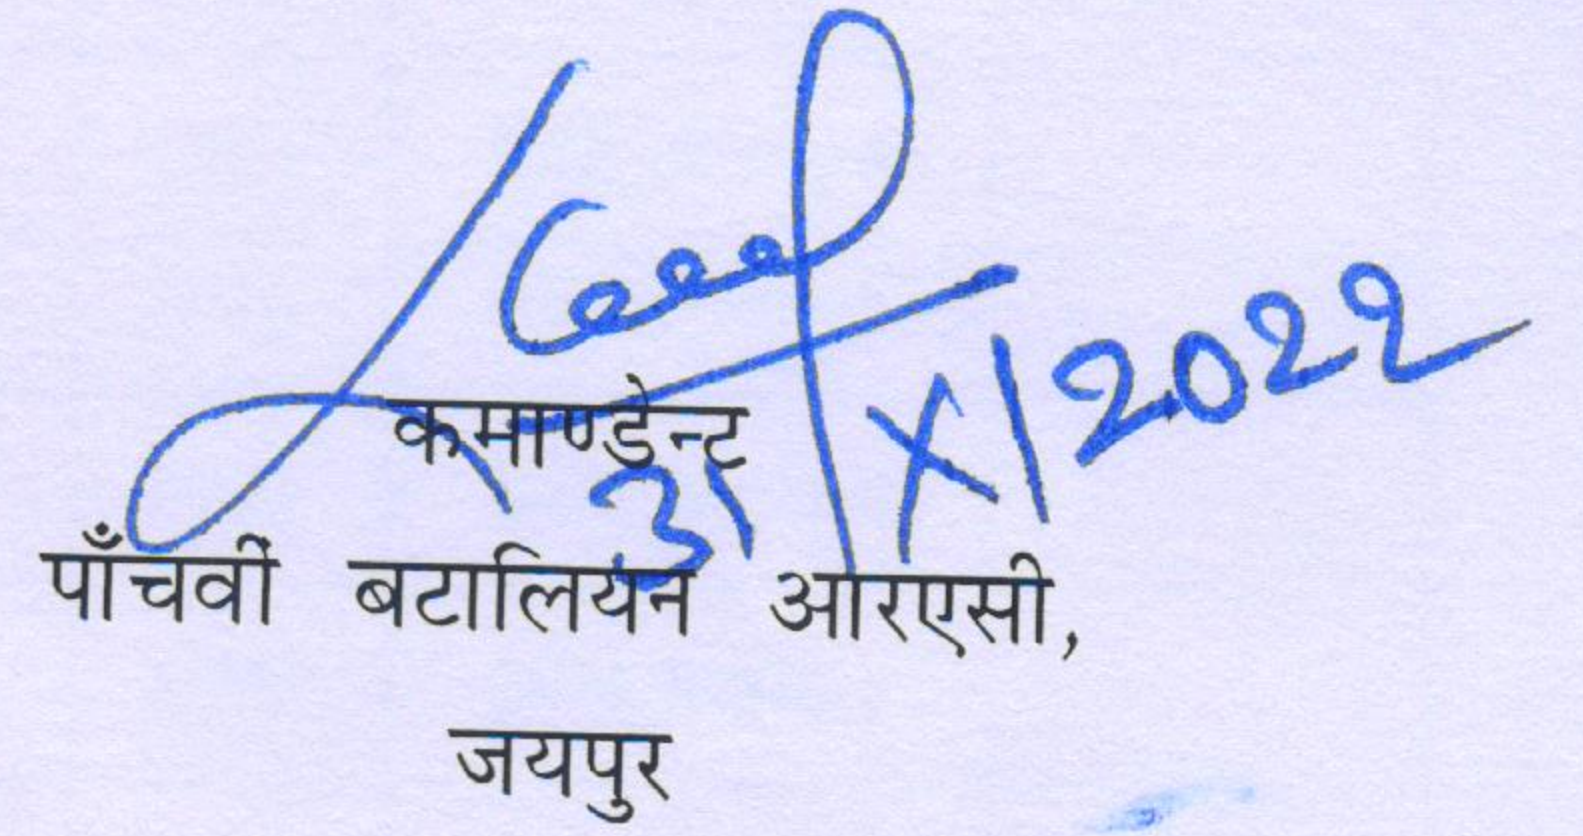 X/2022
कमाण्डेन्ट
पाँचवीं बटालियन आरएसी,
जयपुर